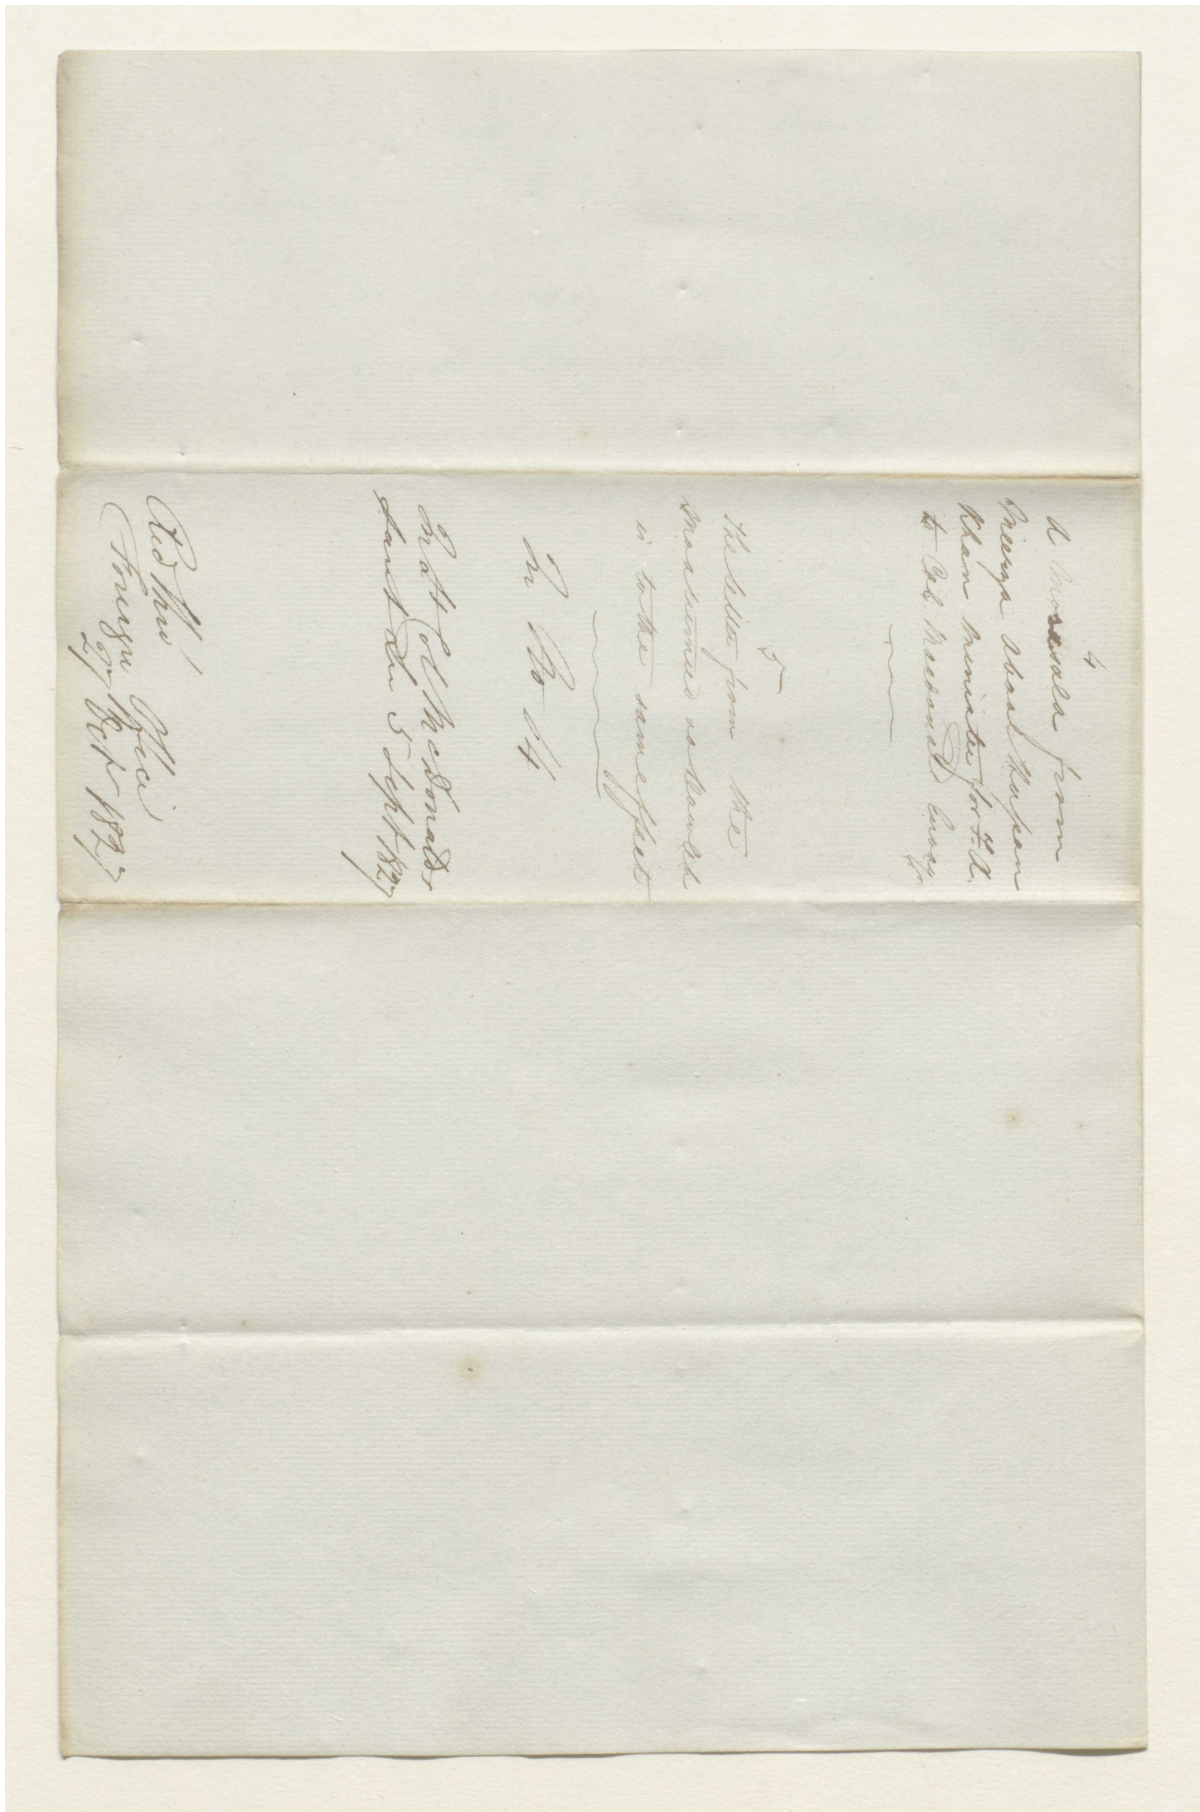 4
A Morasala from
Meerza Abool Hassan
Khan Minister for F. A.
to Col. Macdonald Envoy
5
The letter from the
Moatumud
is to the same effect
In No 14
In Lt Col McDonalds
Secret Lr 5 Sept 1827
Red thro'
Foreign Office
27 Oct 1827